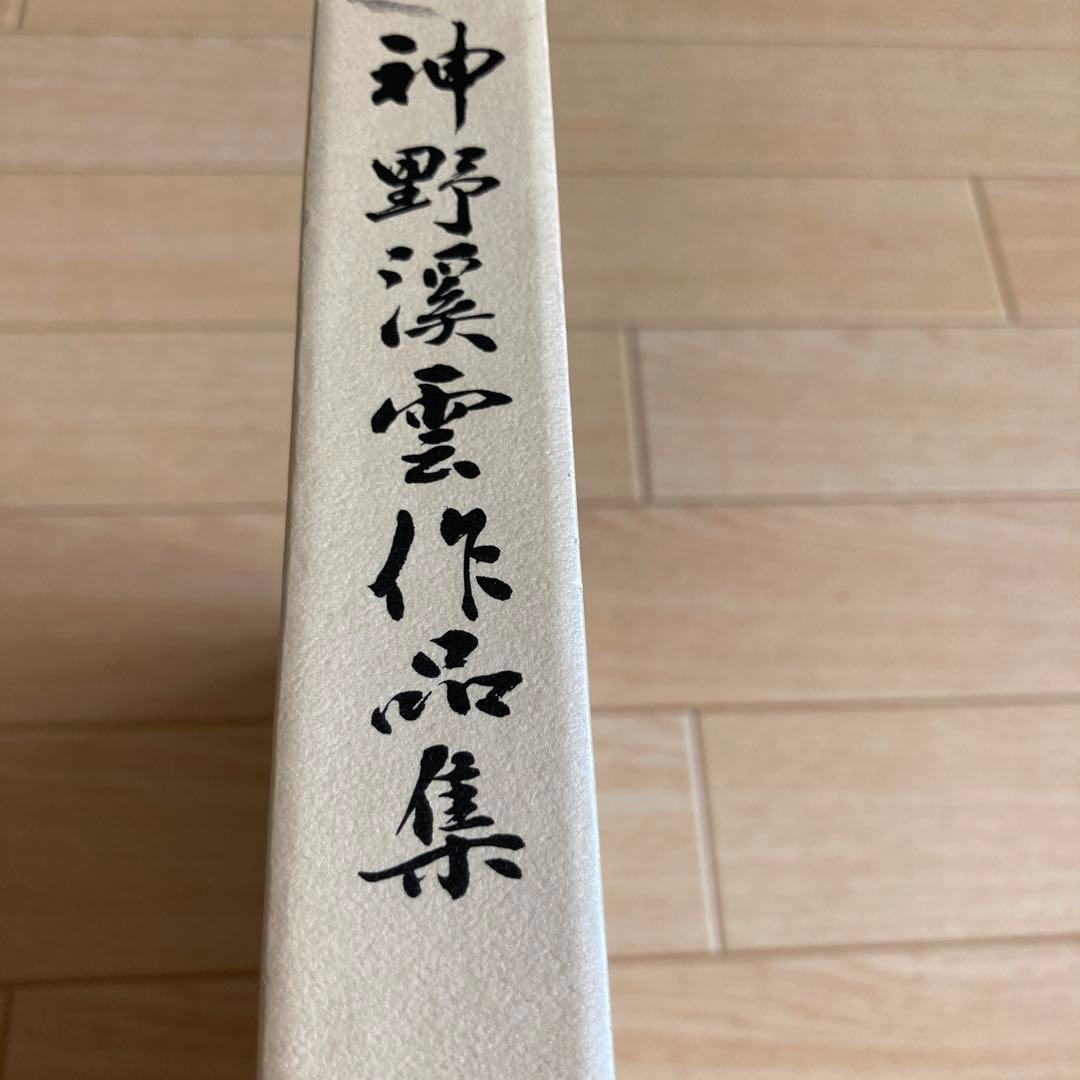 神野溪雲作品集